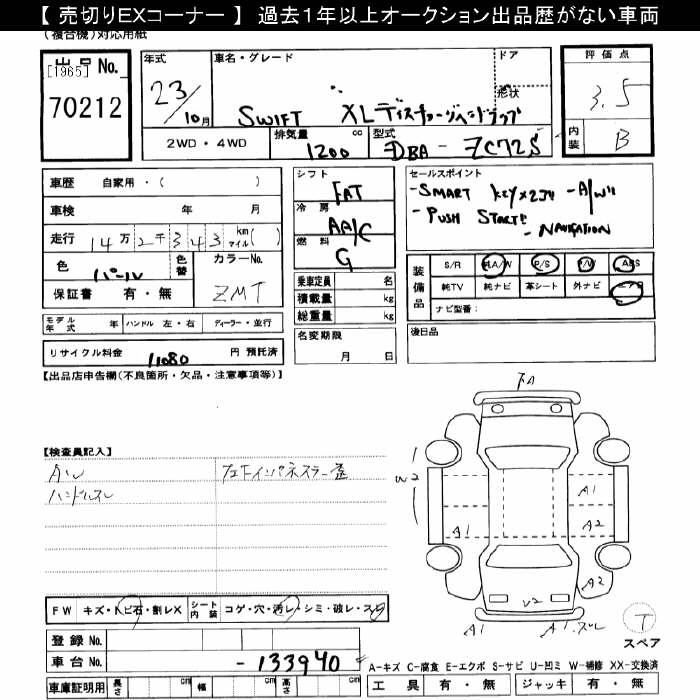 【 売切りEXコーナー 】 過去１年以上オークション出品歴がない車両
(複合機)対応用紙
出品 No.
[1965]
70212
年式
23/10月
車名・グレード
SWIFT XL ディスチャージヘッドランプ
ドア
形状
評価点
3.5
内装
B
2WD・4WD
排気量 1200 cc
型式 DBA - ZC72S
車歴 自家用・( )
車検 年 月
走行 14万2千343 km マイル( )
色 パール
色替
カラーNo.
ZMT
保証書 有・無
モデル年式 年
ハンドル 左・右
ディーラー・並行
リサイクル料金 11080 円 預託済
シフト FAT
冷房 AA/C
燃料 G
乗車定員 名
積載量 kg
総重量 kg
名変期限
月 日
セールスポイント
-SMART KEY×2コ -A/W
-PUSH START!
-NAVIGATION
装備品
S/R A/W P/S P/W ABS
純TV 純ナビ 革シート 外ナビ エアB
ナビ型番:
後日品
【出品店申告欄(不良箇所・欠品・注意事項等)】
【検査員記入】
AW
ハンドルスレ
左下インパネステー歪
下A
W2
A1
A1
A2
A2
V2
A1
A1.スレ
T
スペア
FW キズ・トビ石・割レX
シート内装 コゲ・穴・汚レ・シミ・破レ・スレ
登録 No.
車台 No. -133940
車庫証明用 長さ cm 幅 cm 高さ cm
A-キズ C-腐食 E-エクボ S-サビ U-凹ミ W-補修 XX-交換済
工具 有・無 ジャッキ 有・無